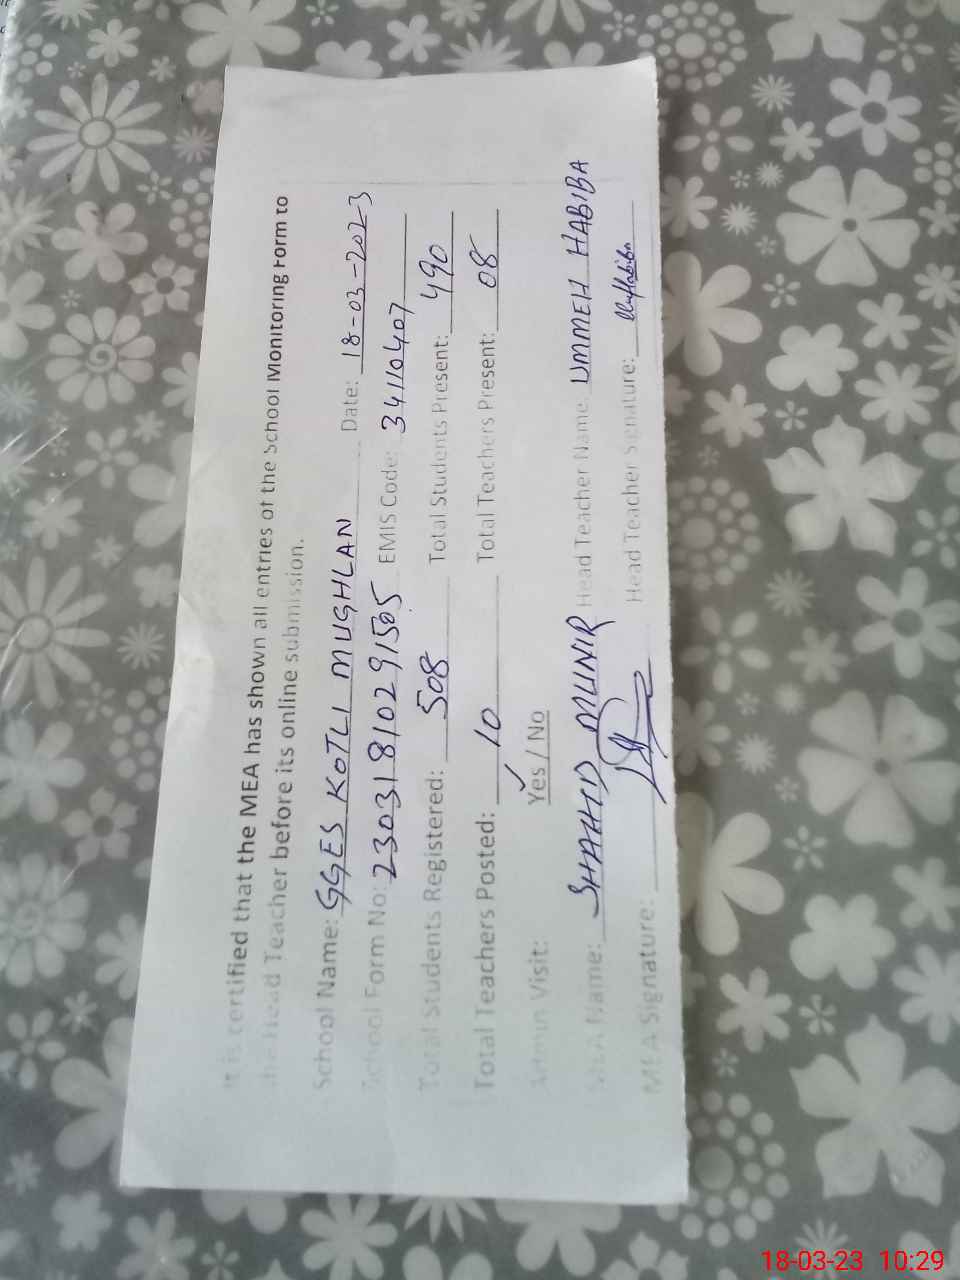 It is certified that the MEA has shown all entries of the School Monitoring Form to
the Head Teacher before its online submission.
School Name: GGES KOTLI MUGHLAN Date: 18-03-2023
School Form No: 23031810291505 EMIS Code: 34110407
Total Students Registered: 508 Total Students Present: 490
Total Teachers Posted: 10 Total Teachers Present: 08
Admin Visit: Yes / No
MEA Name: SHAHID MUNIR Head Teacher Name: UMMEH HABIBA
MEA Signature: Head Teacher Signature: UmHabiba
18-03-23 10:29